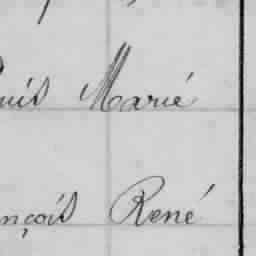 uis Marié
nçois René